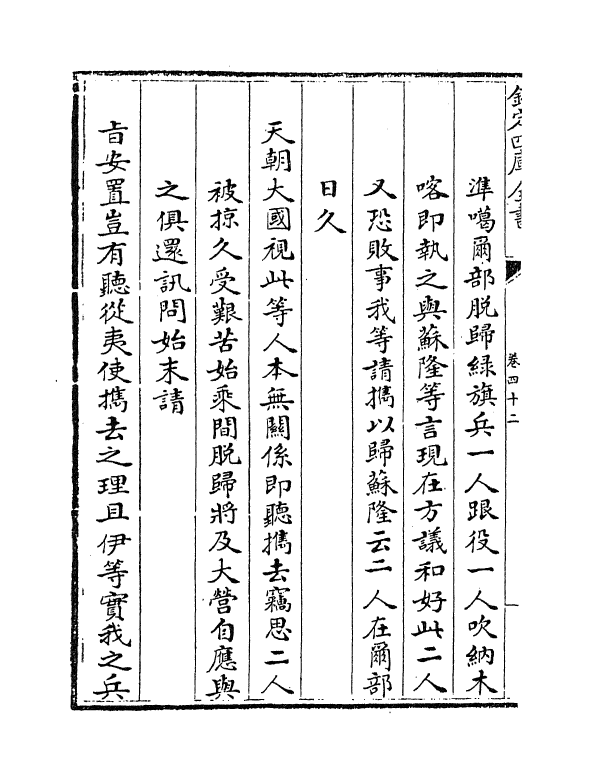 欽定四庫全書
卷四十二
準噶爾部脱歸緑旗兵一人跟役一人吹納木
喀即執之與蘇隆等言現在方議和好此二人
又恐敗事我等請擕以歸蘇隆云二人在爾部
日久
天朝大國視此等人本無關係即聽擕去竊思二人
被掠久受艱苦始乘間脱歸將及大營自應與
之俱還訊問始末請
旨安置豈有聽從夷使擕去之理且伊等實我之兵